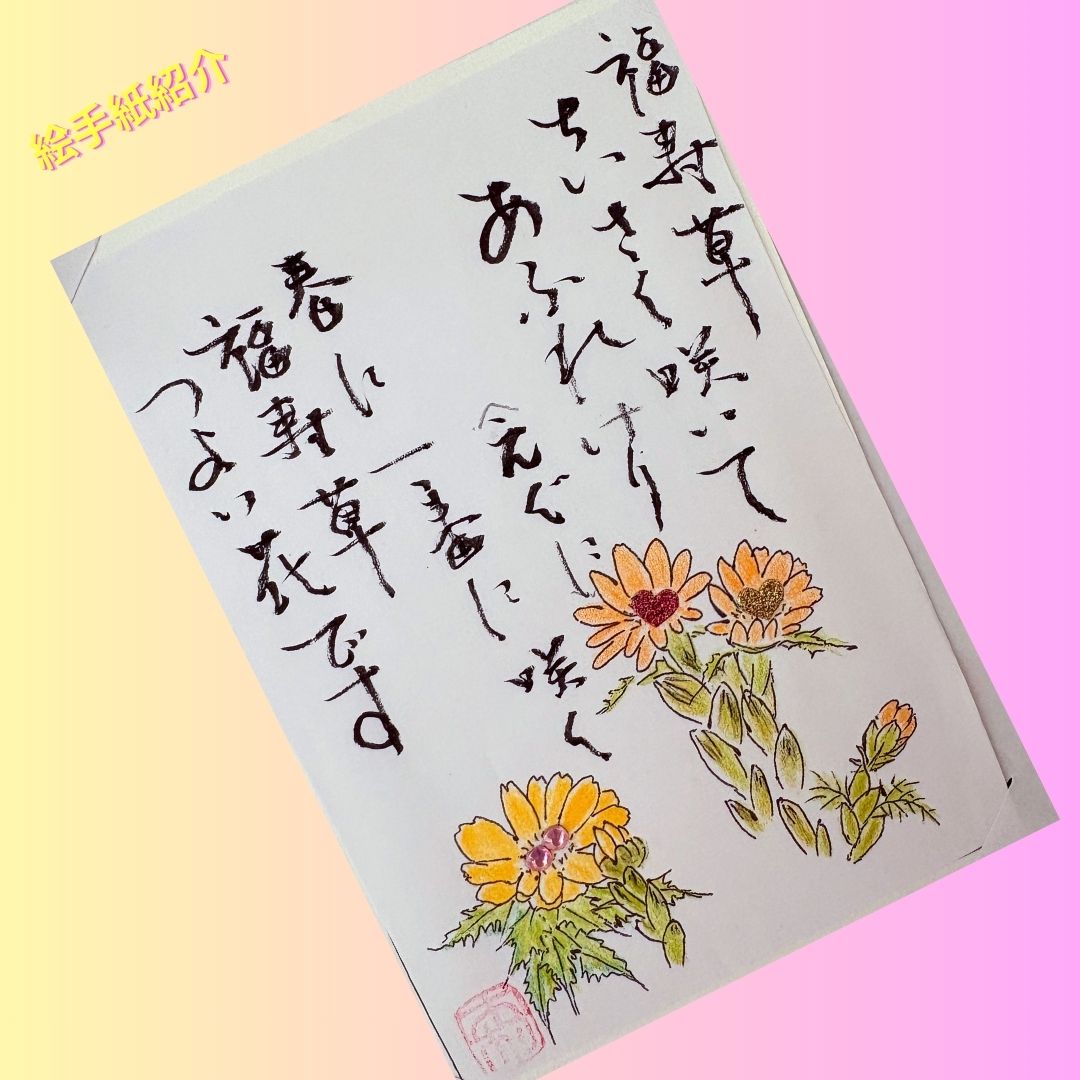 絵手紙紹介
福寿草
ちいさく咲いて
あふれけり
春に一番に咲く
福寿草
つよい花です